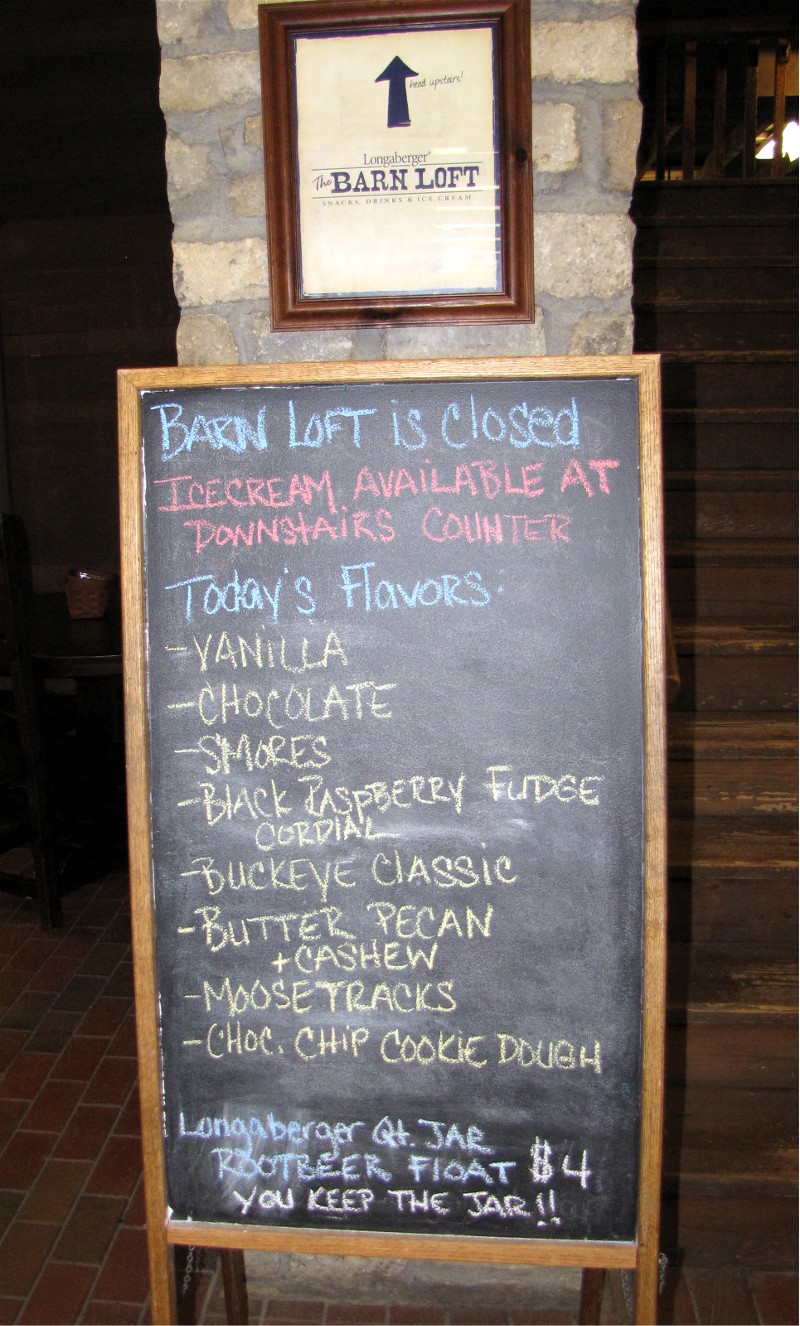 head upstairs!
Longaberger®
The BARN LOFT
SNACKS, DRINKS & ICE CREAM
BARN LOFT is closed
ICECREAM AVAILABLE AT
DOWNSTAIRS COUNTER
Today's Flavors:
-VANILLA
-CHOCOLATE
-SMORES
-BLACK RASPBERRY FUDGE
CORDIAL
-BUCKEYE CLASSIC
-BUTTER PECAN
+CASHEW
-MOOSETRACKS
-CHOC. CHIP COOKIE DOUGH
Longaberger Qt. JAR
ROOTBEER FLOAT $4
YOU KEEP THE JAR!!